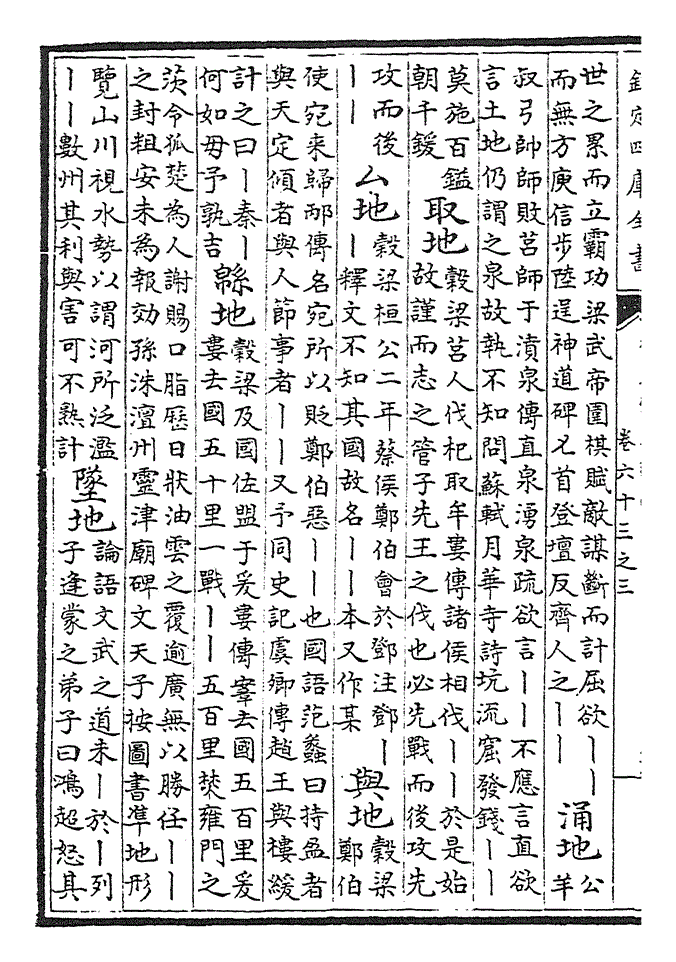 欽定四庫全書
卷六十三之三
世之累而立霸功梁武帝圍棋賦敵謀斷而計屈欲丨丨
而無方庾信步陸逞神道碑乂首登壇反齊人之丨丨
涌地
公
羊
叔弓帥師敗莒師于濆泉傳直泉湧泉疏欲言丨丨不應言直欲
言土地仍謂之泉故執不知問蘇軾月華寺詩坑流窟發錢丨丨
莫施百鎰
朝千鍰
取地
穀梁莒人伐杞取牟婁傳諸侯相伐丨丨於是始
故謹而志之管子先王之伐也必先戰而後攻先
攻而後
丨丨
厶地
穀梁桓公二年蔡侯鄭伯會於鄧注鄧丨
丨釋文不知其國故名丨丨本又作某
與地
穀梁
鄭伯
使宛来歸邴傳名宛所以貶鄭伯惡丨丨也國語范蠡曰持盈者
與天定傾者與人節事者丨丨又予同史記虞卿傳趙王與樓緩
計之曰丨秦丨
何如毋予孰吉
緜地
穀梁及國佐盟于爰婁傳鞌去國五百里爰
婁去國五十里一戰丨丨五百里焚雍門之
茨令狐楚為人謝賜口脂歴日狀油雲之覆逾廣無以勝任丨丨
之封粗安未為報効孫洙澶州靈津廟碑文天子按圖書凖地形
覽山川視水勢以謂河所泛濫
丨丨數州其利與害可不熟計
墜地
論語文武之道未丨於丨列
子逢蒙之弟子曰鴻超怒其